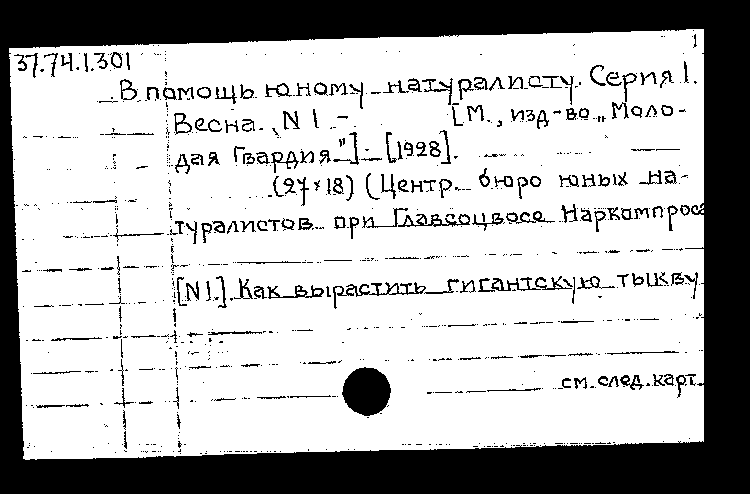 37.74.1.301
1
В помощь юному натуралисту. Серия 1.
Весна. N 1 - [М., изд-во „Моло-
дая Гвардия"]. [1928].
(27×18) (Центр. бюро юных на-
туралистов при Главсоцвосе Наркомпроса
[N 1.] Как вырастить гигантскую тыкву
см. след. карт.